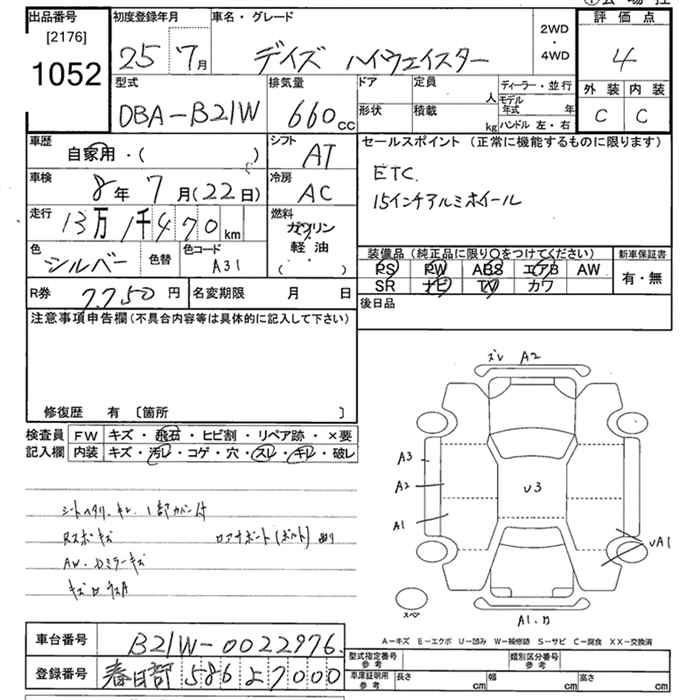 出品番号
[2176]
1052
初度登録年月
25年 7月
車名・グレード
デイズ ハイウェイスター
2WD
・
4WD
評価点
4
型式
DBA-B21W
排気量
660cc
ドア
形状
定員 人
積載 kg
ディーラー・並行
モデル年式 年
ハンドル 左・右
外装 内装
C C
車歴
自家用・( )
シフト
AT
セールスポイント (正常に機能するものに限ります)
ETC.
15インチアルミホイール
車検
8年 7月(22日)
冷房
AC
走行
13万1千470km
燃料
ガソリン
軽油
( )
色
シルバー
色替
色コード
A31
装備品 (純正品に限り○をつけてください)
PS PW ABS エアB AW
SR ナビ TV カワ
新車保証書
有・無
R券
7750円
名変期限 月 日
後日品
注意事項申告欄(不具合内容等は具体的に記入して下さい)
修復歴 有 〔箇所 〕
検査員記入欄
FW キズ・飛石・ヒビ割・リペア跡・×要
内装 キズ・汚レ・コゲ・穴・スレ・キレ・破レ
ズレ A2
A3
A2
A1
U3
UA1
スペア
A1.U
AW.Dミラーキズ
A-キズ E-エクボ U-凹み W-補修跡 S-サビ C-腐食 XX-交換済
車台番号
B21W-0022976.
登録番号
春日部 586 よ 7000
型式指定番号 参考
類別区分番号 参考
車庫証明用 参考
長さ cm 幅 cm 高さ cm